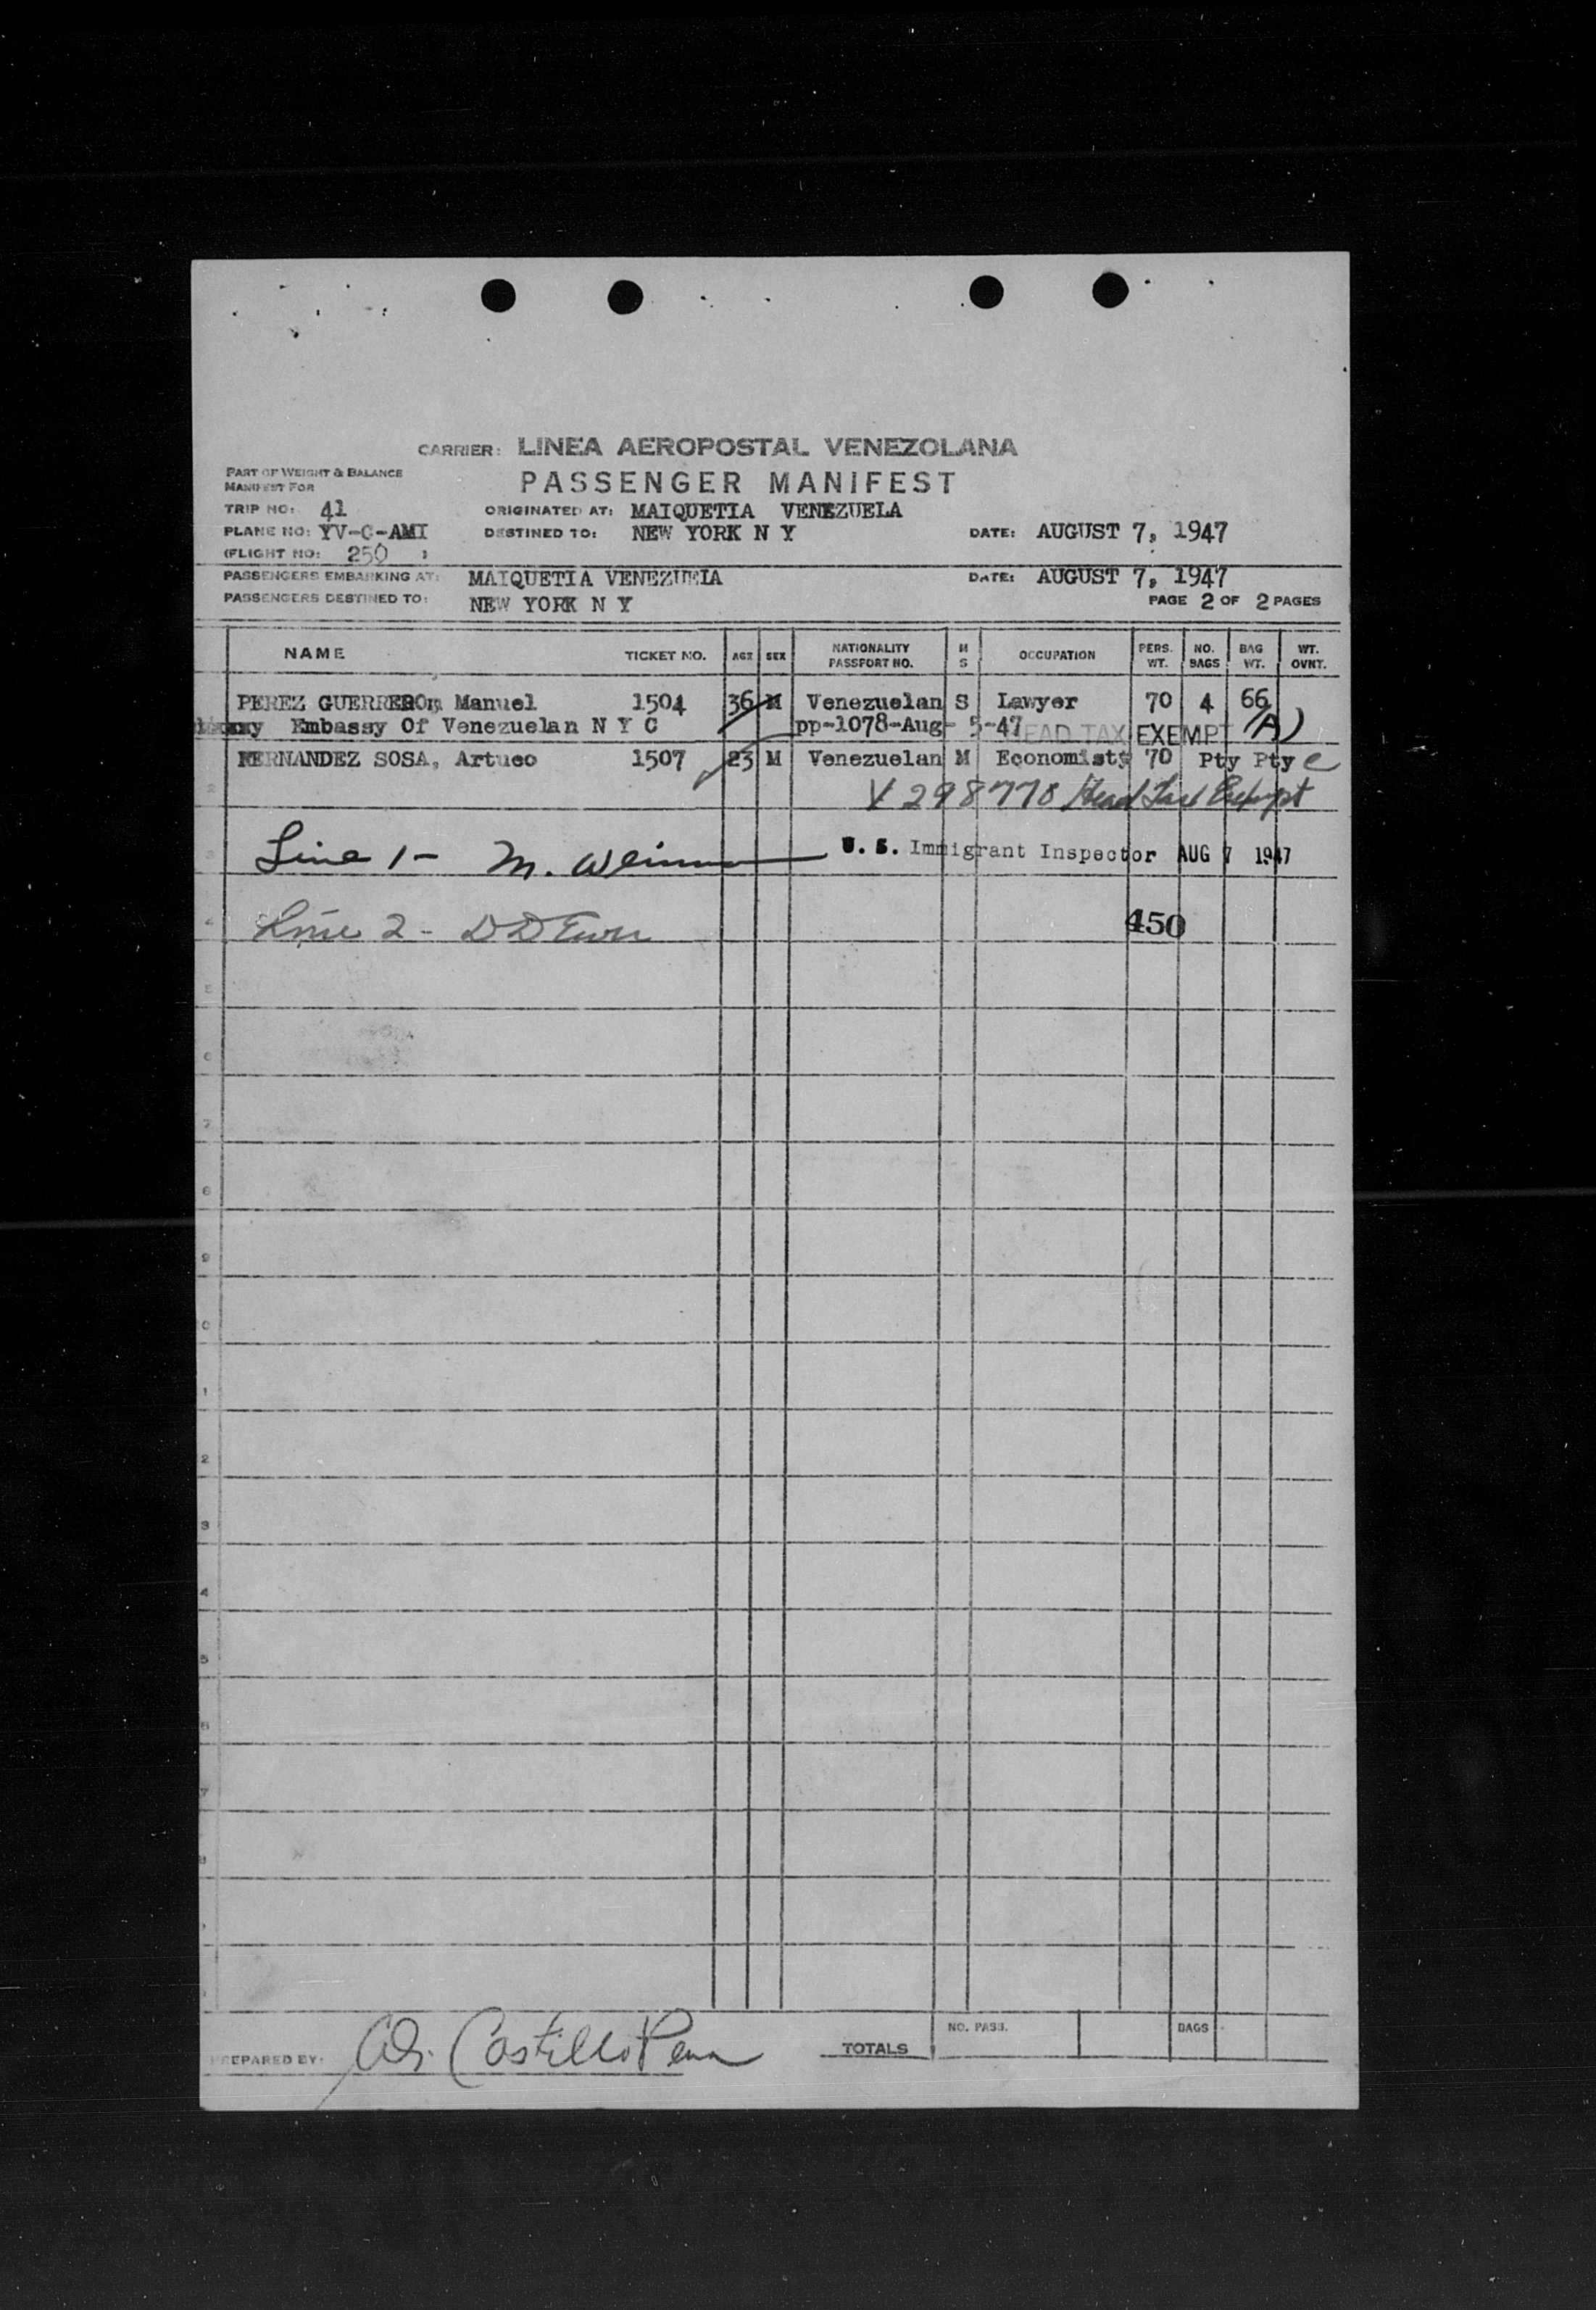 CARRIER: LINEA AEROPOSTAL VENEZOLANA
PART OF WEIGHT & BALANCE
MANIFEST FOR
PASSENGER MANIFEST
TRIP NO: 41 ORIGINATED AT: MAIQUETIA VENEZUELA
PLANE NO: YV-C-AMI DESTINED TO: NEW YORK N Y DATE: AUGUST 7, 1947
(FLIGHT NO: 250 )
PASSENGERS EMBARKING AT: MAIQUETIA VENEZUELA DATE: AUGUST 7, 1947
PASSENGERS DESTINED TO: NEW YORK N Y PAGE 2 OF 2 PAGES
NAME TICKET NO. AGE SEX NATIONALITY PASSPORT NO. M S OCCUPATION PERS. WT. NO. BAGS BAG WT. WT. OVNT.
PEREZ GUERRERO, Manuel 1504 36 M Venezuelan S Lawyer 70 4 66
Embassy Of Venezuelan N Y C pp-1078-Aug- 5-47 HEAD TAX EXEMPT (A)
FERNANDEZ SOSA, Artueo 1507 23 M Venezuelan M Economists 70 Pty Pty e
2 V 298778 Head Tax Exempt
3 Line 1- M. U. S. Immigrant Inspector AUG 7 1947
4 Line 2- DD 450
5
6
7
8
9
0
1
2
3
4
5
6
7
8
PREPARED BY: Castillo Pena TOTALS NO. PASS. BAGS